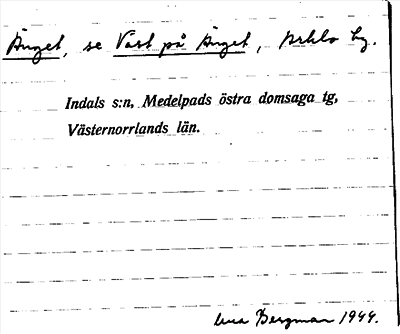 Änget, se Vast på Änget, prklo by.
Indals s:n, Medelpads östra domsaga tg,
Västernorrlands län.
Bergman 1944.